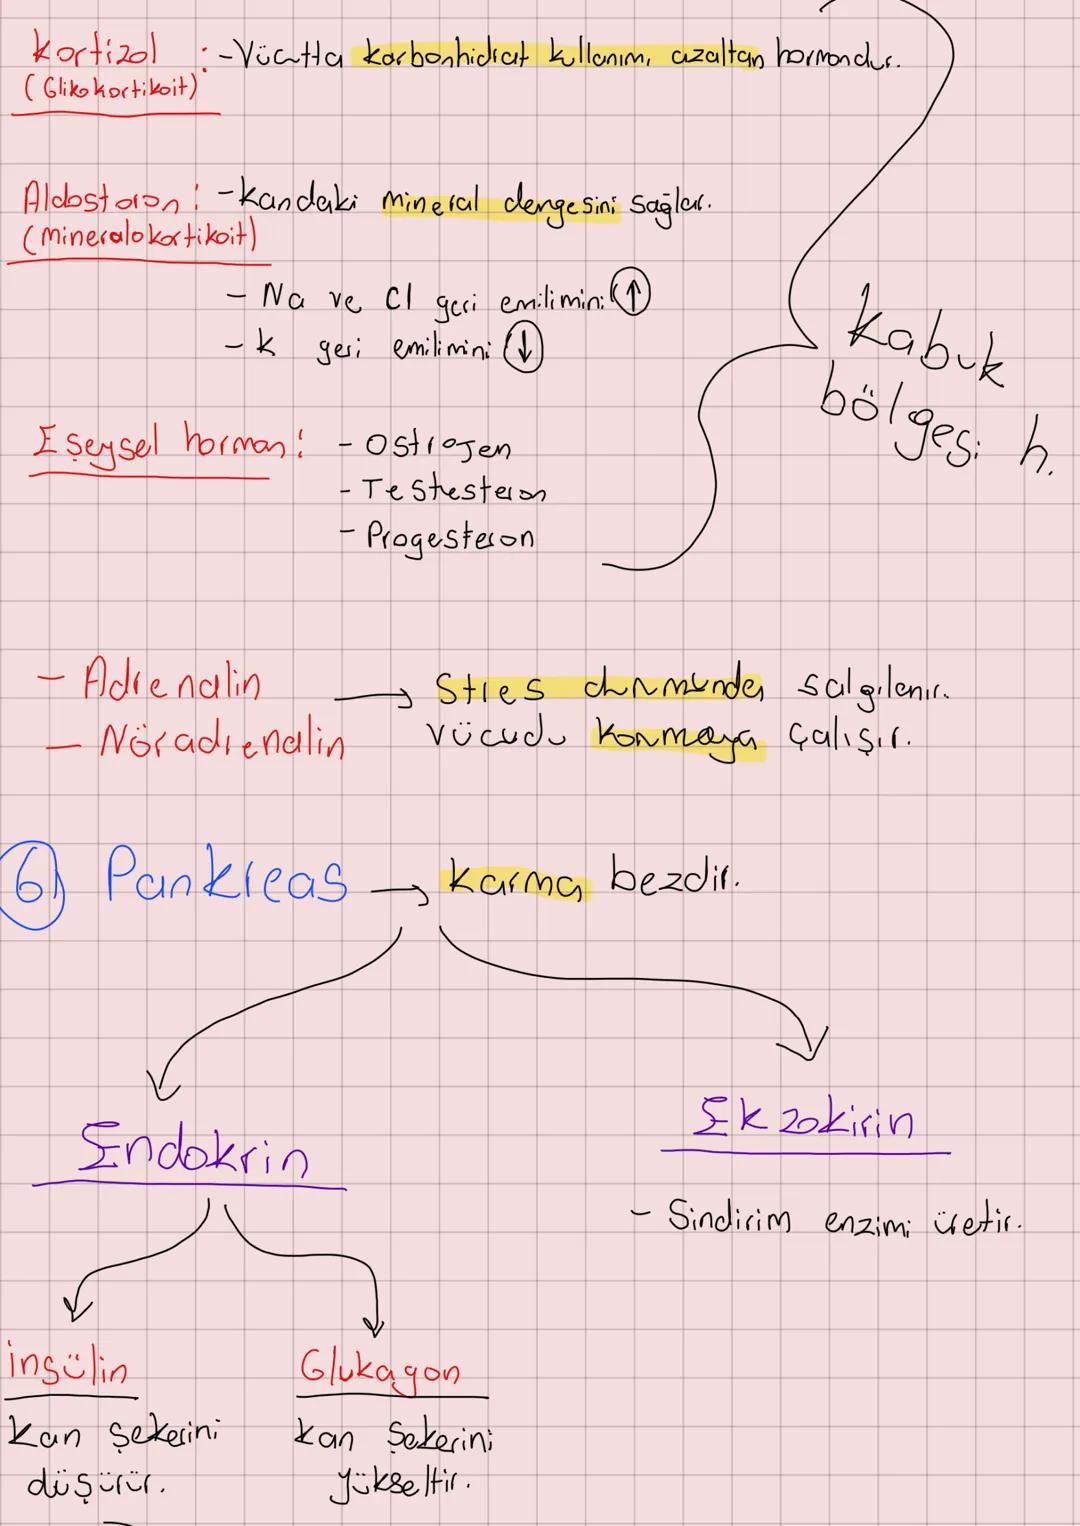 Kortizol : -Vücutta karbonhidrat kullanımı azaltan hormondur.
(Glikokortikoit)
Aldostoron : -Kandaki mineral dengesini sağlar.
(mineralokortikoit)
- Na ve Cl geri emilimini ↑
- K geri emilimini ↓
Kabuk
bölgesi h.
Eşeysel hormon : - Ostrojen
- Testesteron
- Progesteron
- Adrenalin → Stres durumunda salgılanır.
- Nöradrenalin vücudu korumaya çalışır.
6) Pankreas → karma bezdir.
Ekzokirin
Endokrin
- Sindirim enzimi üretir.
insülin Glukagon
Kan şekerini kan şekerini
düşürür. yükseltir.